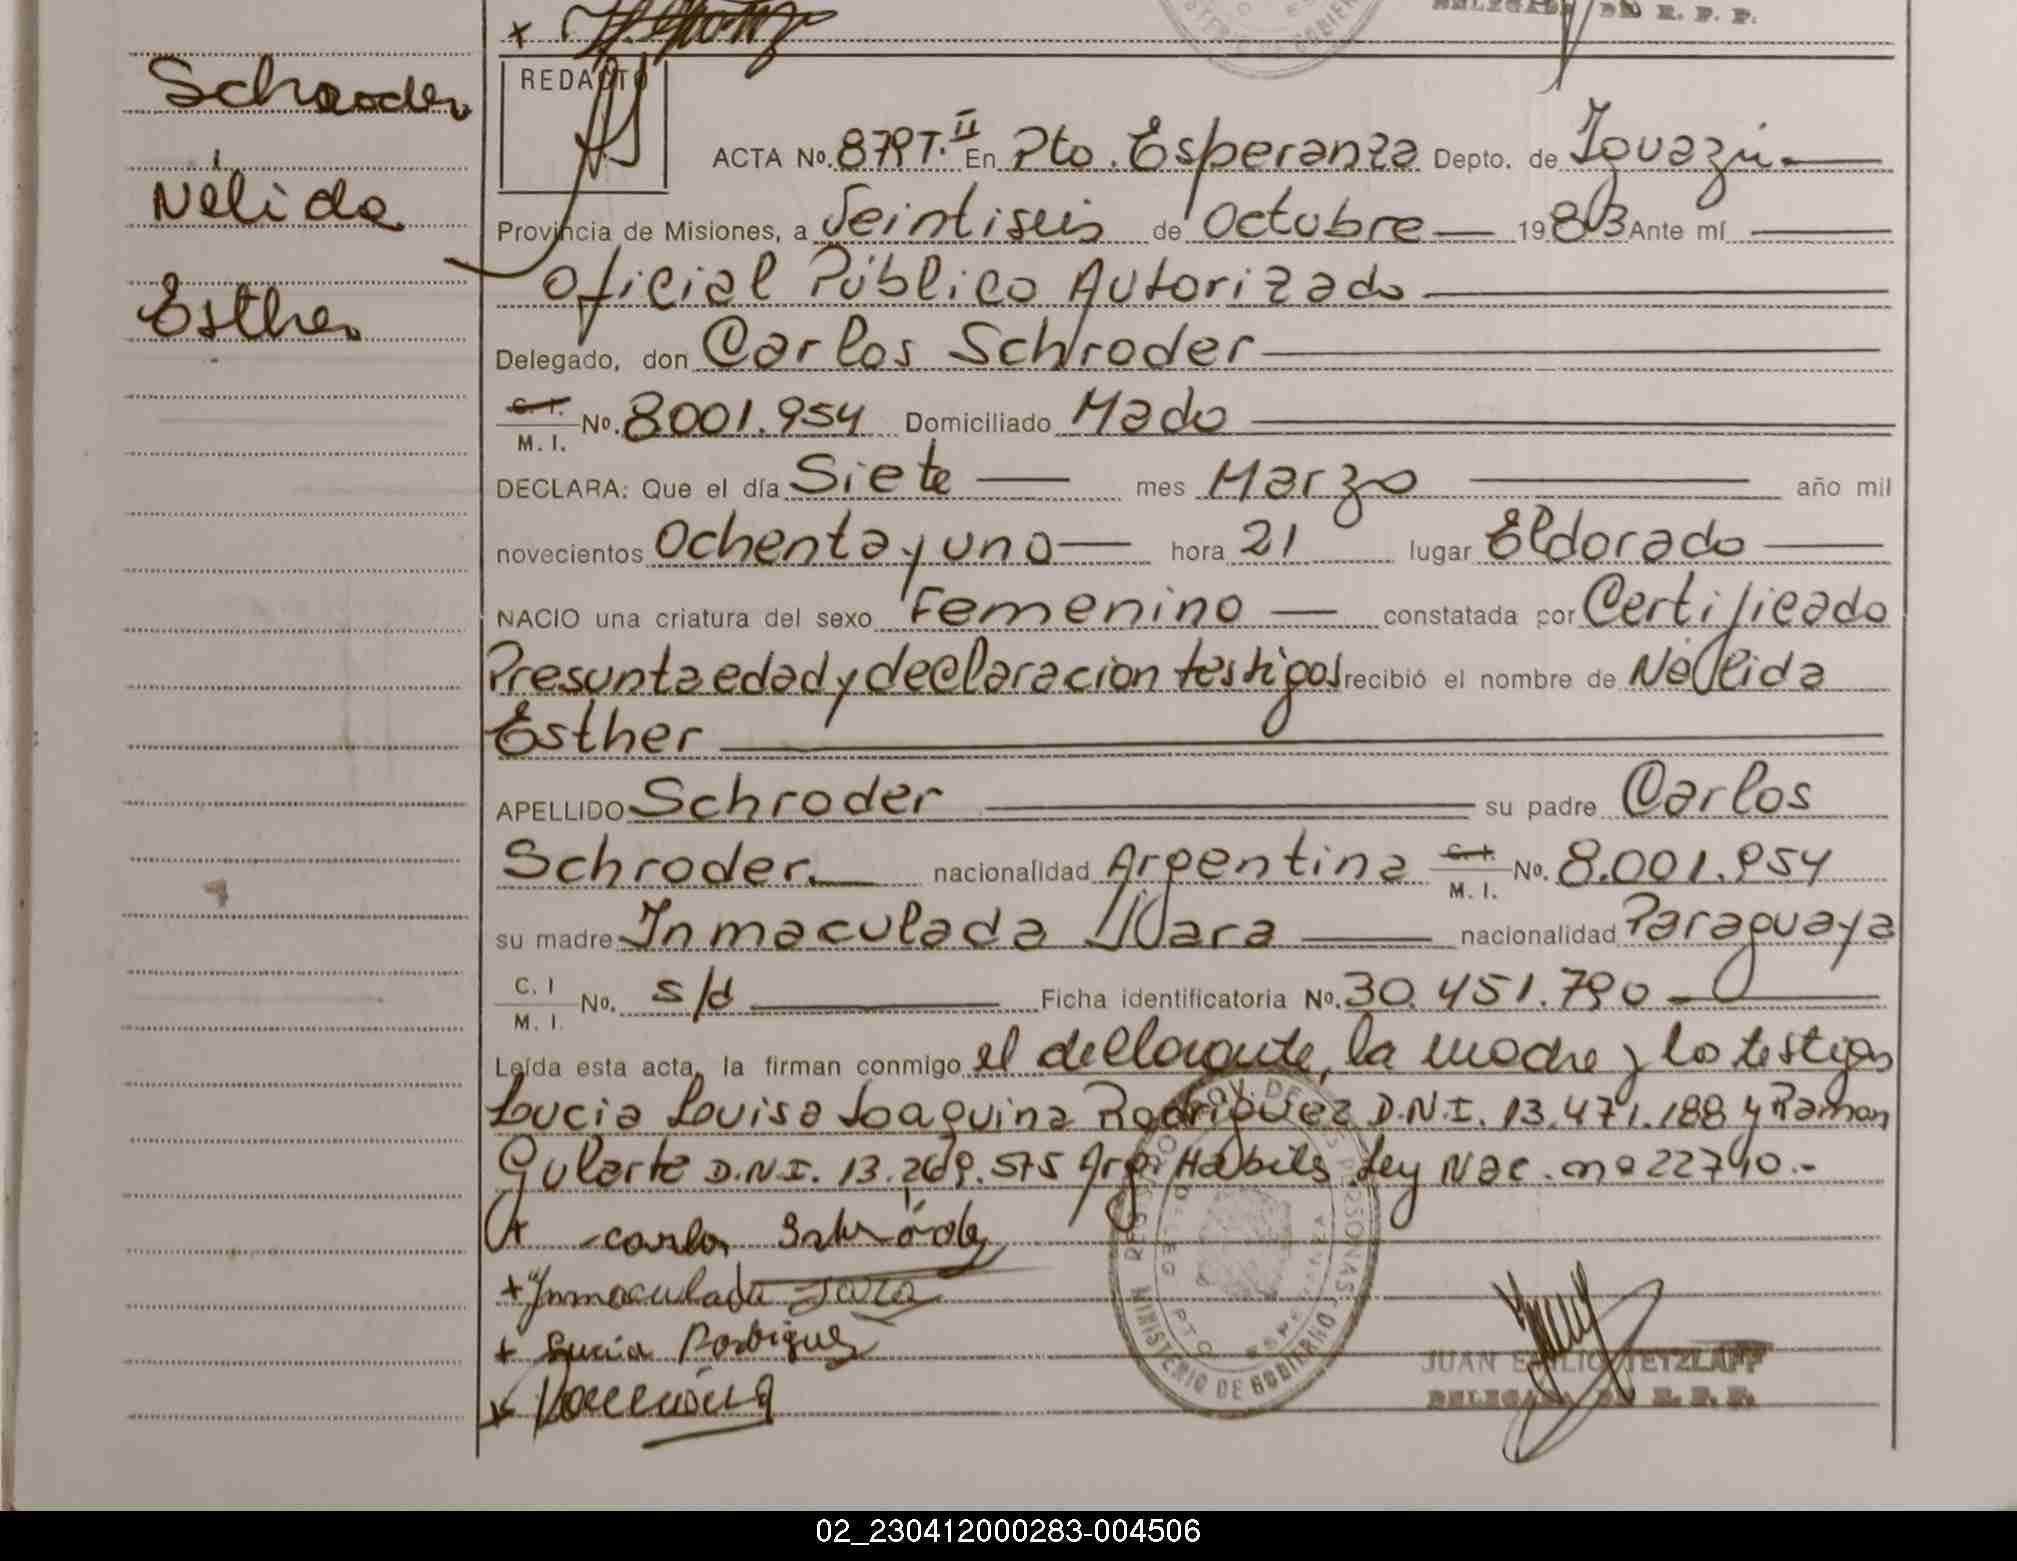 DELEGADO DE R. P. P.
+
Schroder
Nélida
Esther
REDACTO
ACTA No. 879 T. II En Pto. Esperanza Depto. de Iguazú
Provincia de Misiones, a Veintiseis de Octubre 1983 Ante mí
Oficial Público Autorizado
Delegado, don Carlos Schroder
C. I. / M. I. No. 8001.954 Domiciliado Mado
DECLARA: Que el día Siete mes Marzo año mil
novecientos Ochenta y uno hora 21 lugar Eldorado
NACIO una criatura del sexo Femenino constatada por Certificado
Presunta edad y declaracion testigos recibió el nombre de Nélida
Esther
APELLIDO Schroder su padre Carlos
Schroder. nacionalidad Argentina C. I. / M. I. No. 8.001.954
su madre Inmaculada Jara nacionalidad Paraguaya
C. I / M. I. No. s/d Ficha identificatoria No. 30.451.790
Leída esta acta, la firman conmigo el declarante, la madre y lo testigos
Lucia Louisa Joaquina Rodriguez D.N.I. 13.471.188 y Ramon
Gularte D.N.I. 13.269.575 Arg. Habils. Ley Nac. nº 22740.-
+ Carlos Schröder
+ Inmaculada Jara
+ Lucia Rodriguez
+
MINISTERIO DE GOBIERNO
PTO ESPERANZA
JUAN EMILIO TETZLAFF
DELEGADO DE R. P. P.
02_230412000283-004506